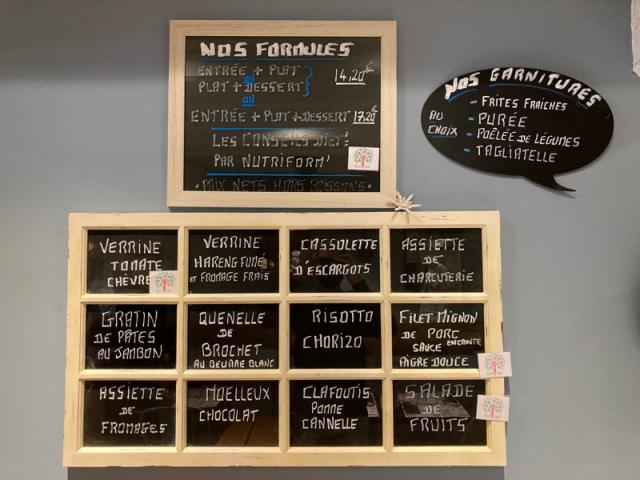 NOS FORMULES
ENTRÉE + PLAT
ou
PLAT + DESSERT
14,20€
ou
ENTRÉE + PLAT + DESSERT 17,20€
LES CONSEILS DIET
PAR NUTRIFORM'
• PRIX NETS HORS BOISSONS •
NOS GARNITURES
AU CHOIX
- FRITES FRAICHES
- PURÉE
- POÊLÉE DE LÉGUMES
- TAGLIATELLE
VERRINE
TOMATE
CHÈVRE
VERRINE
HARENG FUMÉ
ET FROMAGE FRAIS
CASSOLETTE
D'ESCARGOTS
ASSIETTE
DE
CHARCUTERIE
GRATIN
DE PÂTES
AU JAMBON
QUENELLE
DE
BROCHET
AU BEURRE BLANC
RISOTTO
CHORIZO
FILET MIGNON
DE PORC
SAUCE
AIGRE DOUCE
ASSIETTE
DE
FROMAGES
MOELLEUX
CHOCOLAT
CLAFOUTIS
POMME
CANNELLE
SALADE
DE
FRUITS